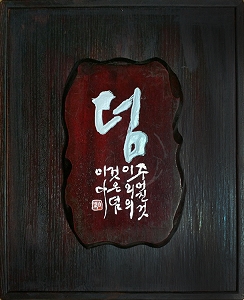 덤
주어진것
이외의
것은덤
이다